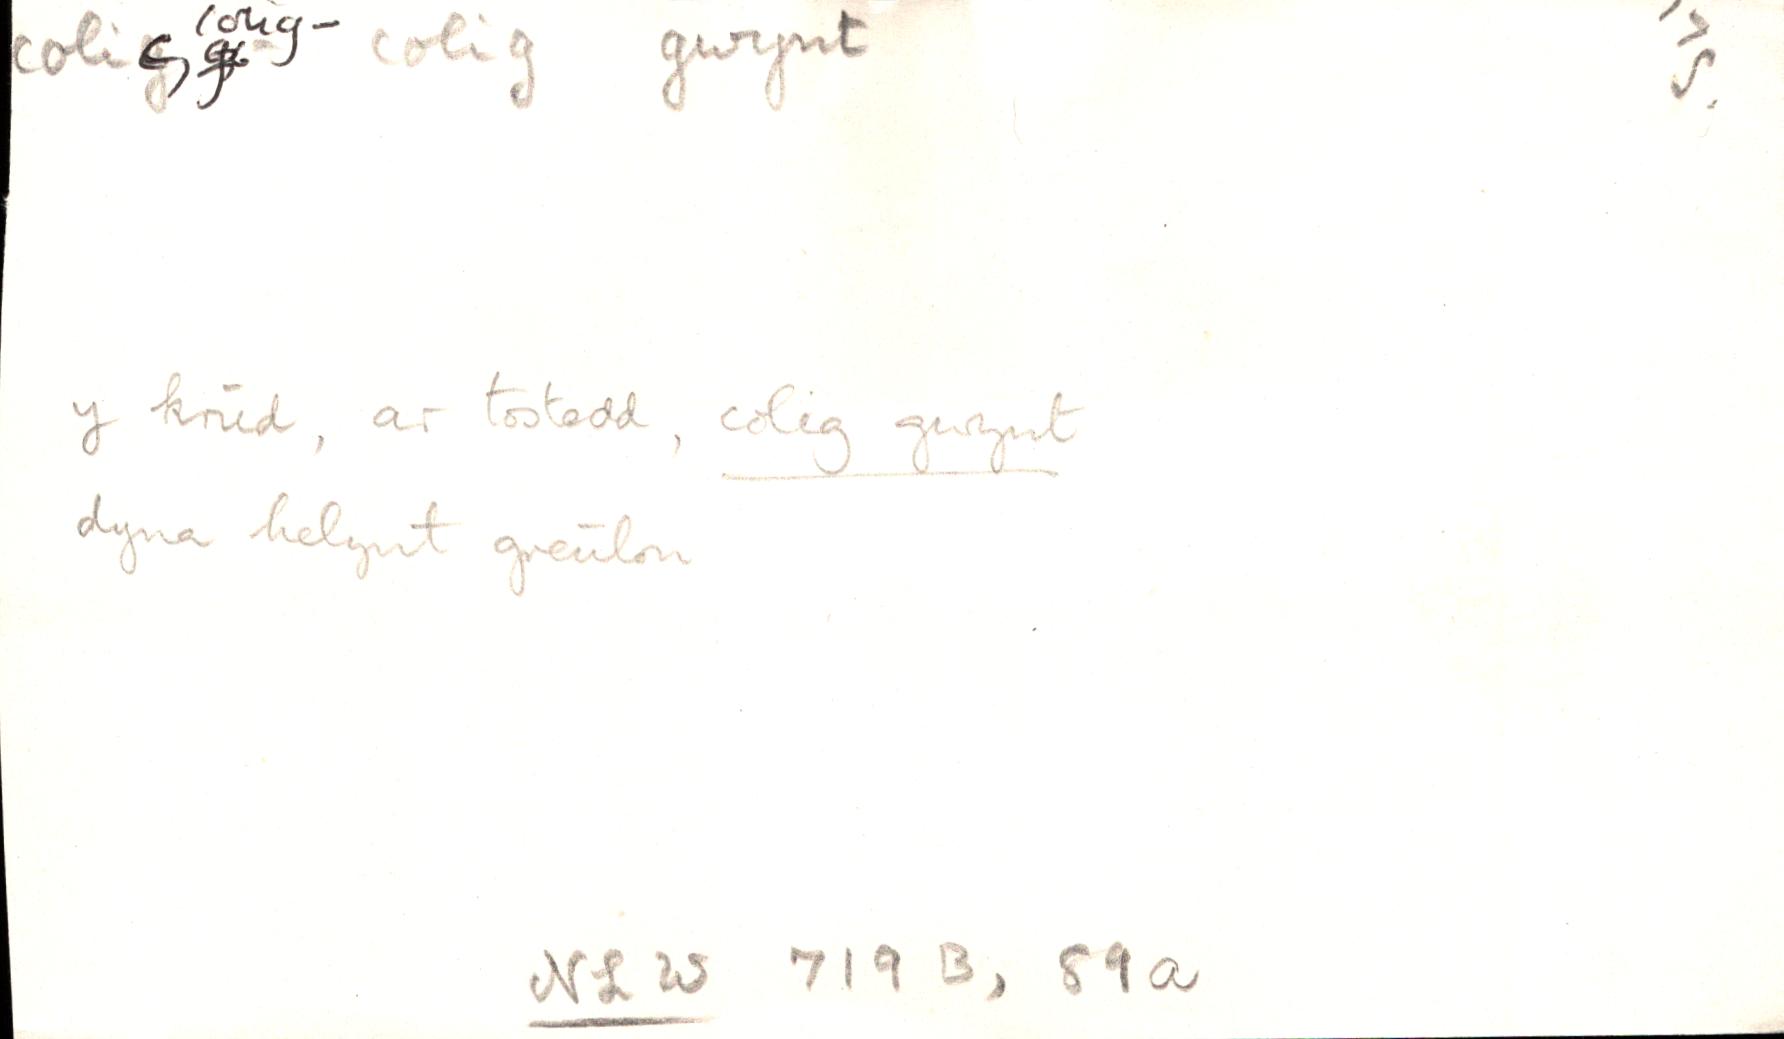 colig colig- colig gwynt 17 S.
y krūd, ar tostedd, colig gwynt
dyna helynt greūlon
NLW 719 B, 89a